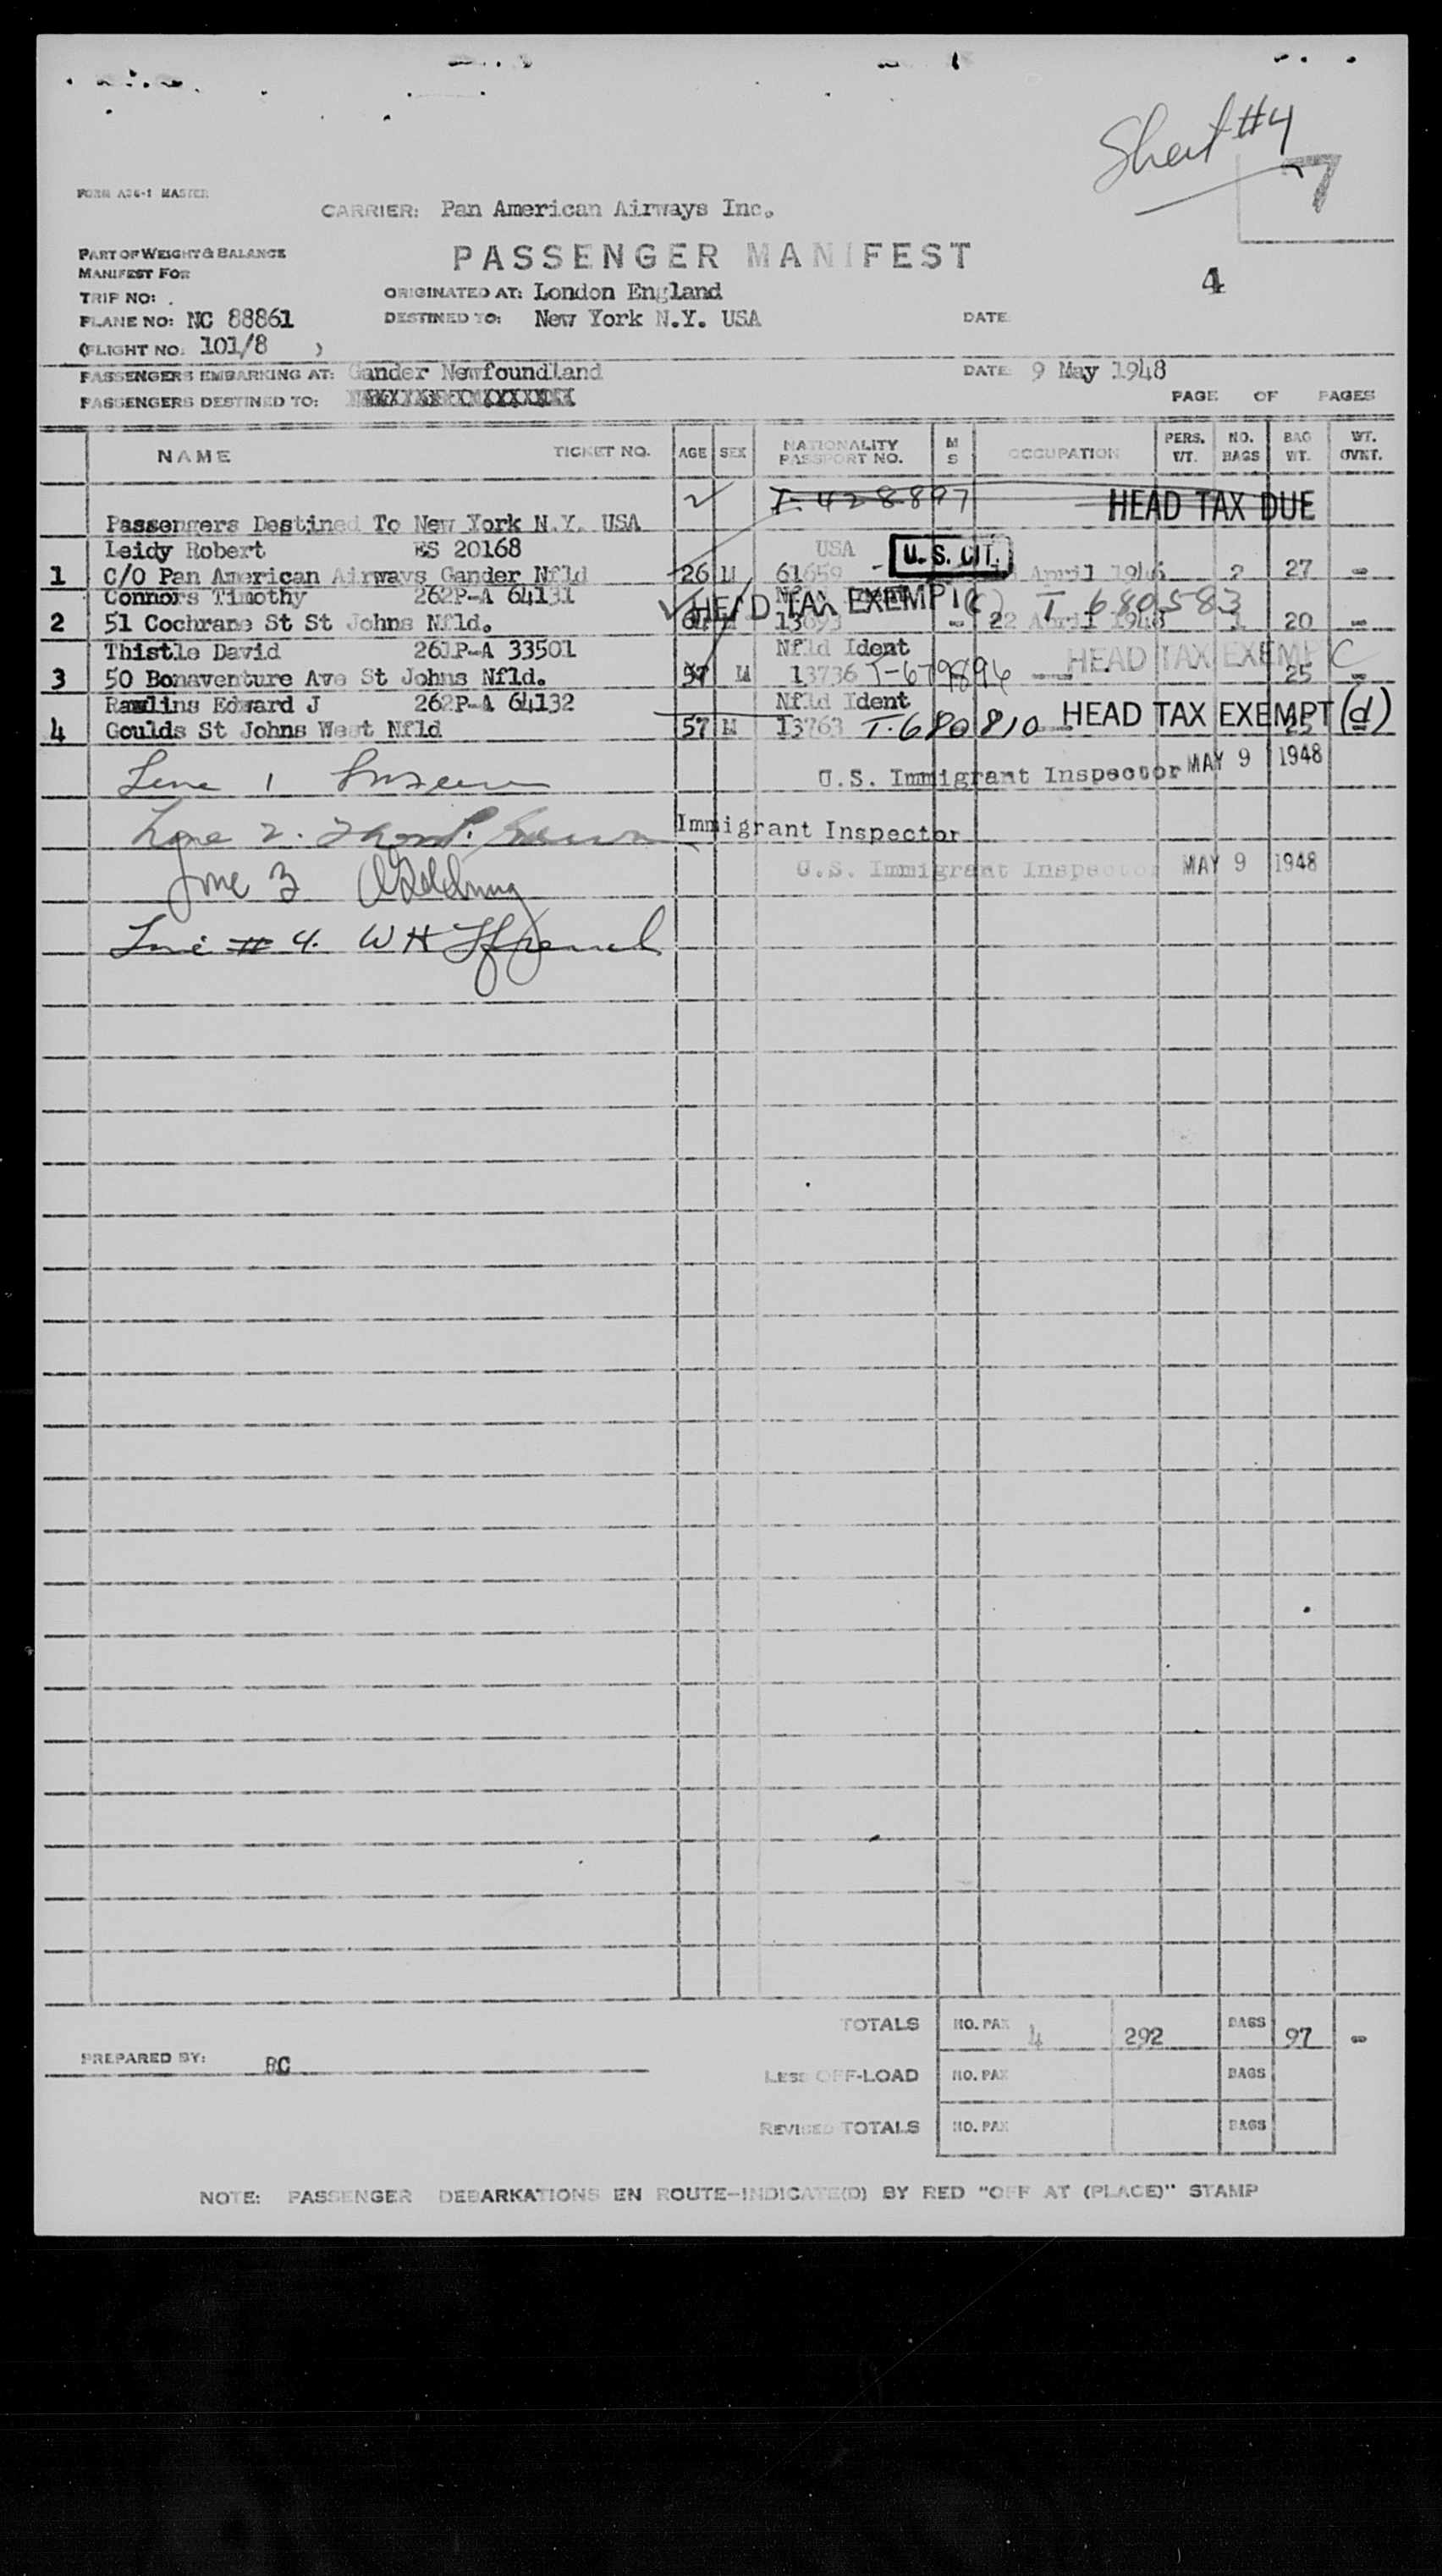 Sheet #4
7
FORM A26-1 MASTER
CARRIER: Pan American Airways Inc.
PART OF WEIGHT & BALANCE
MANIFEST FOR
PASSENGER MANIFEST
4
TRIP NO: .
ORIGINATED AT: London England
PLANE NO: NC 88861
DESTINED TO: New York N.Y. USA
DATE
(FLIGHT NO. 101/8 )
PASSENGERS EMBARKING AT: Gander Newfoundland
DATE 9 May 1948
PASSENGERS DESTINED TO:
PAGE OF PAGES
NAME TICKET NO. AGE SEX NATIONALITY PASSPORT NO. M S OCCUPATION PERS. WT. NO. BAGS BAG WT. WT. OVRT.
T-428897 HEAD TAX DUE
Passengers Destined To New York N.Y. USA
Leidy Robert ES 20168 USA U.S. CIT.
1 C/O Pan American Airways Gander Nfld 26 M 61659 - April 1946 2 27 -
Connors Timothy 262P-A 64131 HEAD TAX EXEMPT (c) T 680583
2 51 Cochrane St St Johns Nfld. M 13693 - 22 April 1948 1 20 -
Thistle David 261P-A 33501 Nfld Ident HEAD TAX EXEMPT C
3 50 Bonaventure Ave St Johns Nfld. 57 M 13736 T-679896 25 -
Rawlins Edward J 262P-A 64132 Nfld Ident
4 Goulds St Johns West Nfld 57 M 13763 T-680810 HEAD TAX EXEMPT (d) 25 -
Line 1
U.S. Immigrant Inspector MAY 9 1948
Line 2.
Immigrant Inspector
Line 3
U.S. Immigrant Inspector MAY 9 1948
Line # 4. WH
TOTALS NO. PAX 4 292 BAGS 97 -
PREPARED BY: RC
LESS OFF-LOAD NO. PAX BAGS
REVISED TOTALS NO. PAX BAGS
NOTE: PASSENGER DEBARKATIONS EN ROUTE-INDICATE(D) BY RED "OFF AT (PLACE)" STAMP